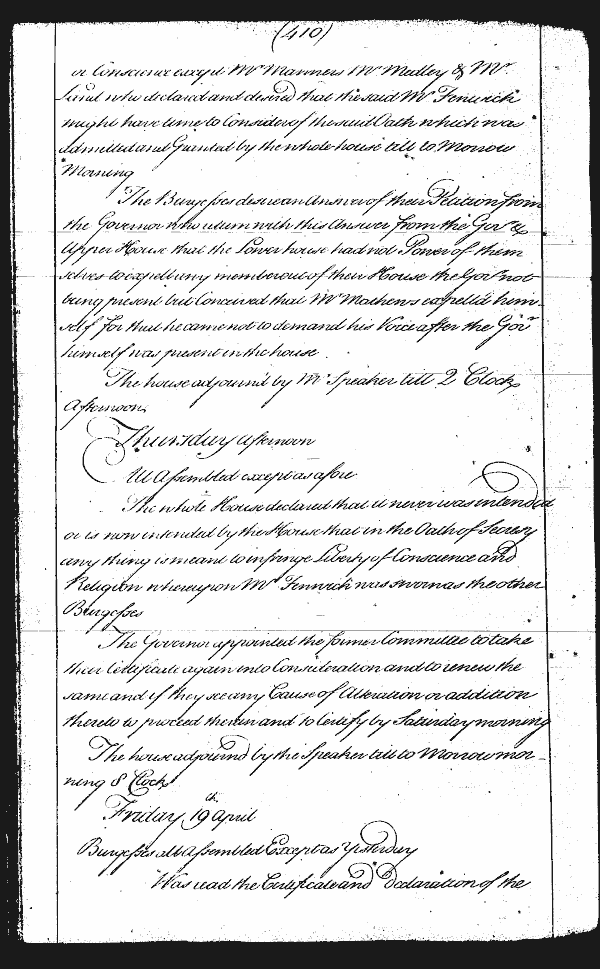 (410)
or Conscience except Mr Manners Mr Medley & Mr
Lind who declared and desired that the said Mr Fenwick
might have time to Consider of the said Oath which was
admitted and Granted by the whole house till to Morrow
Morning
The Burgesses desire an Answer of their Petition from
the Governor who return with this Answer from the Govr &
Upper House that the Lower house had not Power of them
selves to expell any member out of their House the Govr not
being present but Conceived that Mr Mathews expell'd him-
self for that he came not to demand his Voice after the Govr
himself was present in the house
The house adjourn'd by Mr Speaker till 2 Clock
Afternoon
Thursday afternoon
All Assembled except as afore
The whole House declared that it never was intended
or is now intended by the House that in the Oath of Secresy
any thing is meant to infringe Liberty of Conscience and
Religion whereupon Mr Fenwick was sworn as the other
Burgesses
The Governor appointed the former Committee to take
their Certificate again into Consideration and to renew the
same and if they see any Cause of Alteration or addition
thereto to proceed therein and to Certify by Saturday morning
The house adjournd by the Speaker till to Morrow mor-
ning 8 Clock
Friday 19th April
Burgesses all Assembled Except as Yesterday
Was read the Certificate and Declaration of the